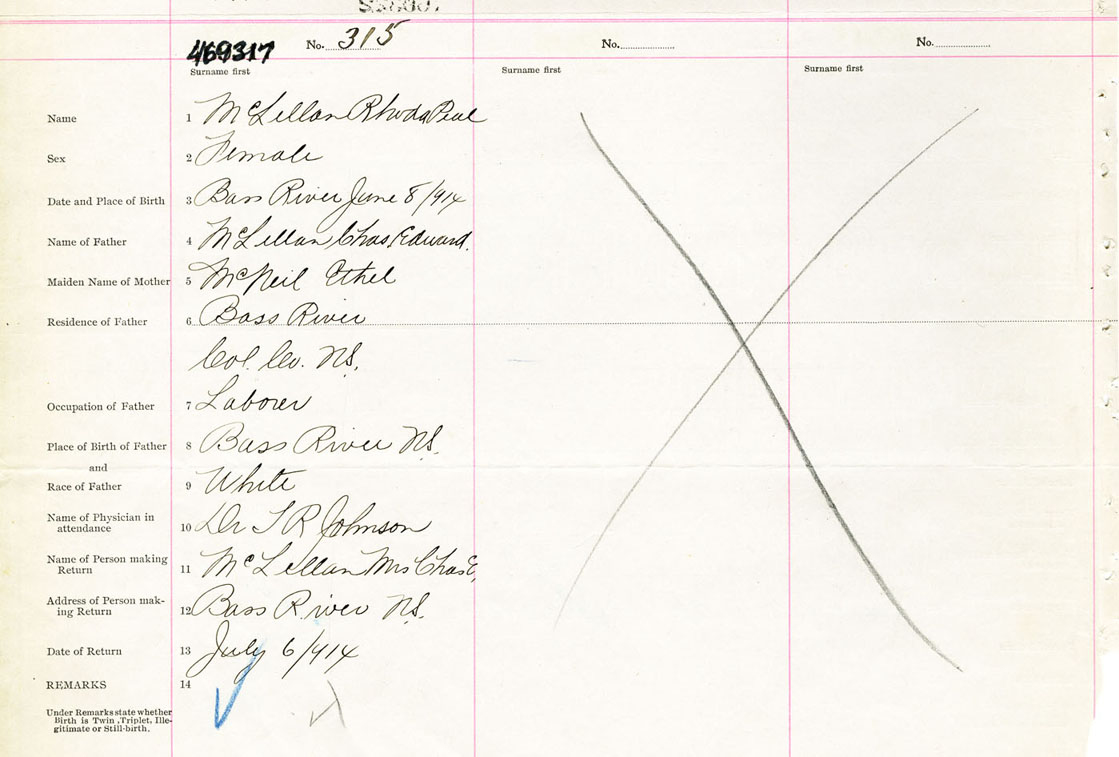 469317
No. 315 No. No.
Surname first Surname first Surname first
Name 1 McLellan Rhoda Peal
Sex 2 Female
Date and Place of Birth 3 Bass River June 8/914
Name of Father 4 McLellan Chas, Edward.
Maiden Name of Mother 5 McNeil Ethel
Residence of Father 6 Bass River
Col. Co. N.S.
Occupation of Father 7 Laborer
Place of Birth of Father 8 Bass River N.S.
and
Race of Father 9 White
Name of Physician in
attendance 10 Dr T R Johnson
Name of Person making
Return 11 McLellan Mrs Chas E,
Address of Person mak-
ing Return 12 Bass River N.S.
Date of Return 13 July 6/914
REMARKS 14
Under Remarks state whether
Birth is Twin, Triplet, Ille-
gitimate or Still-birth.